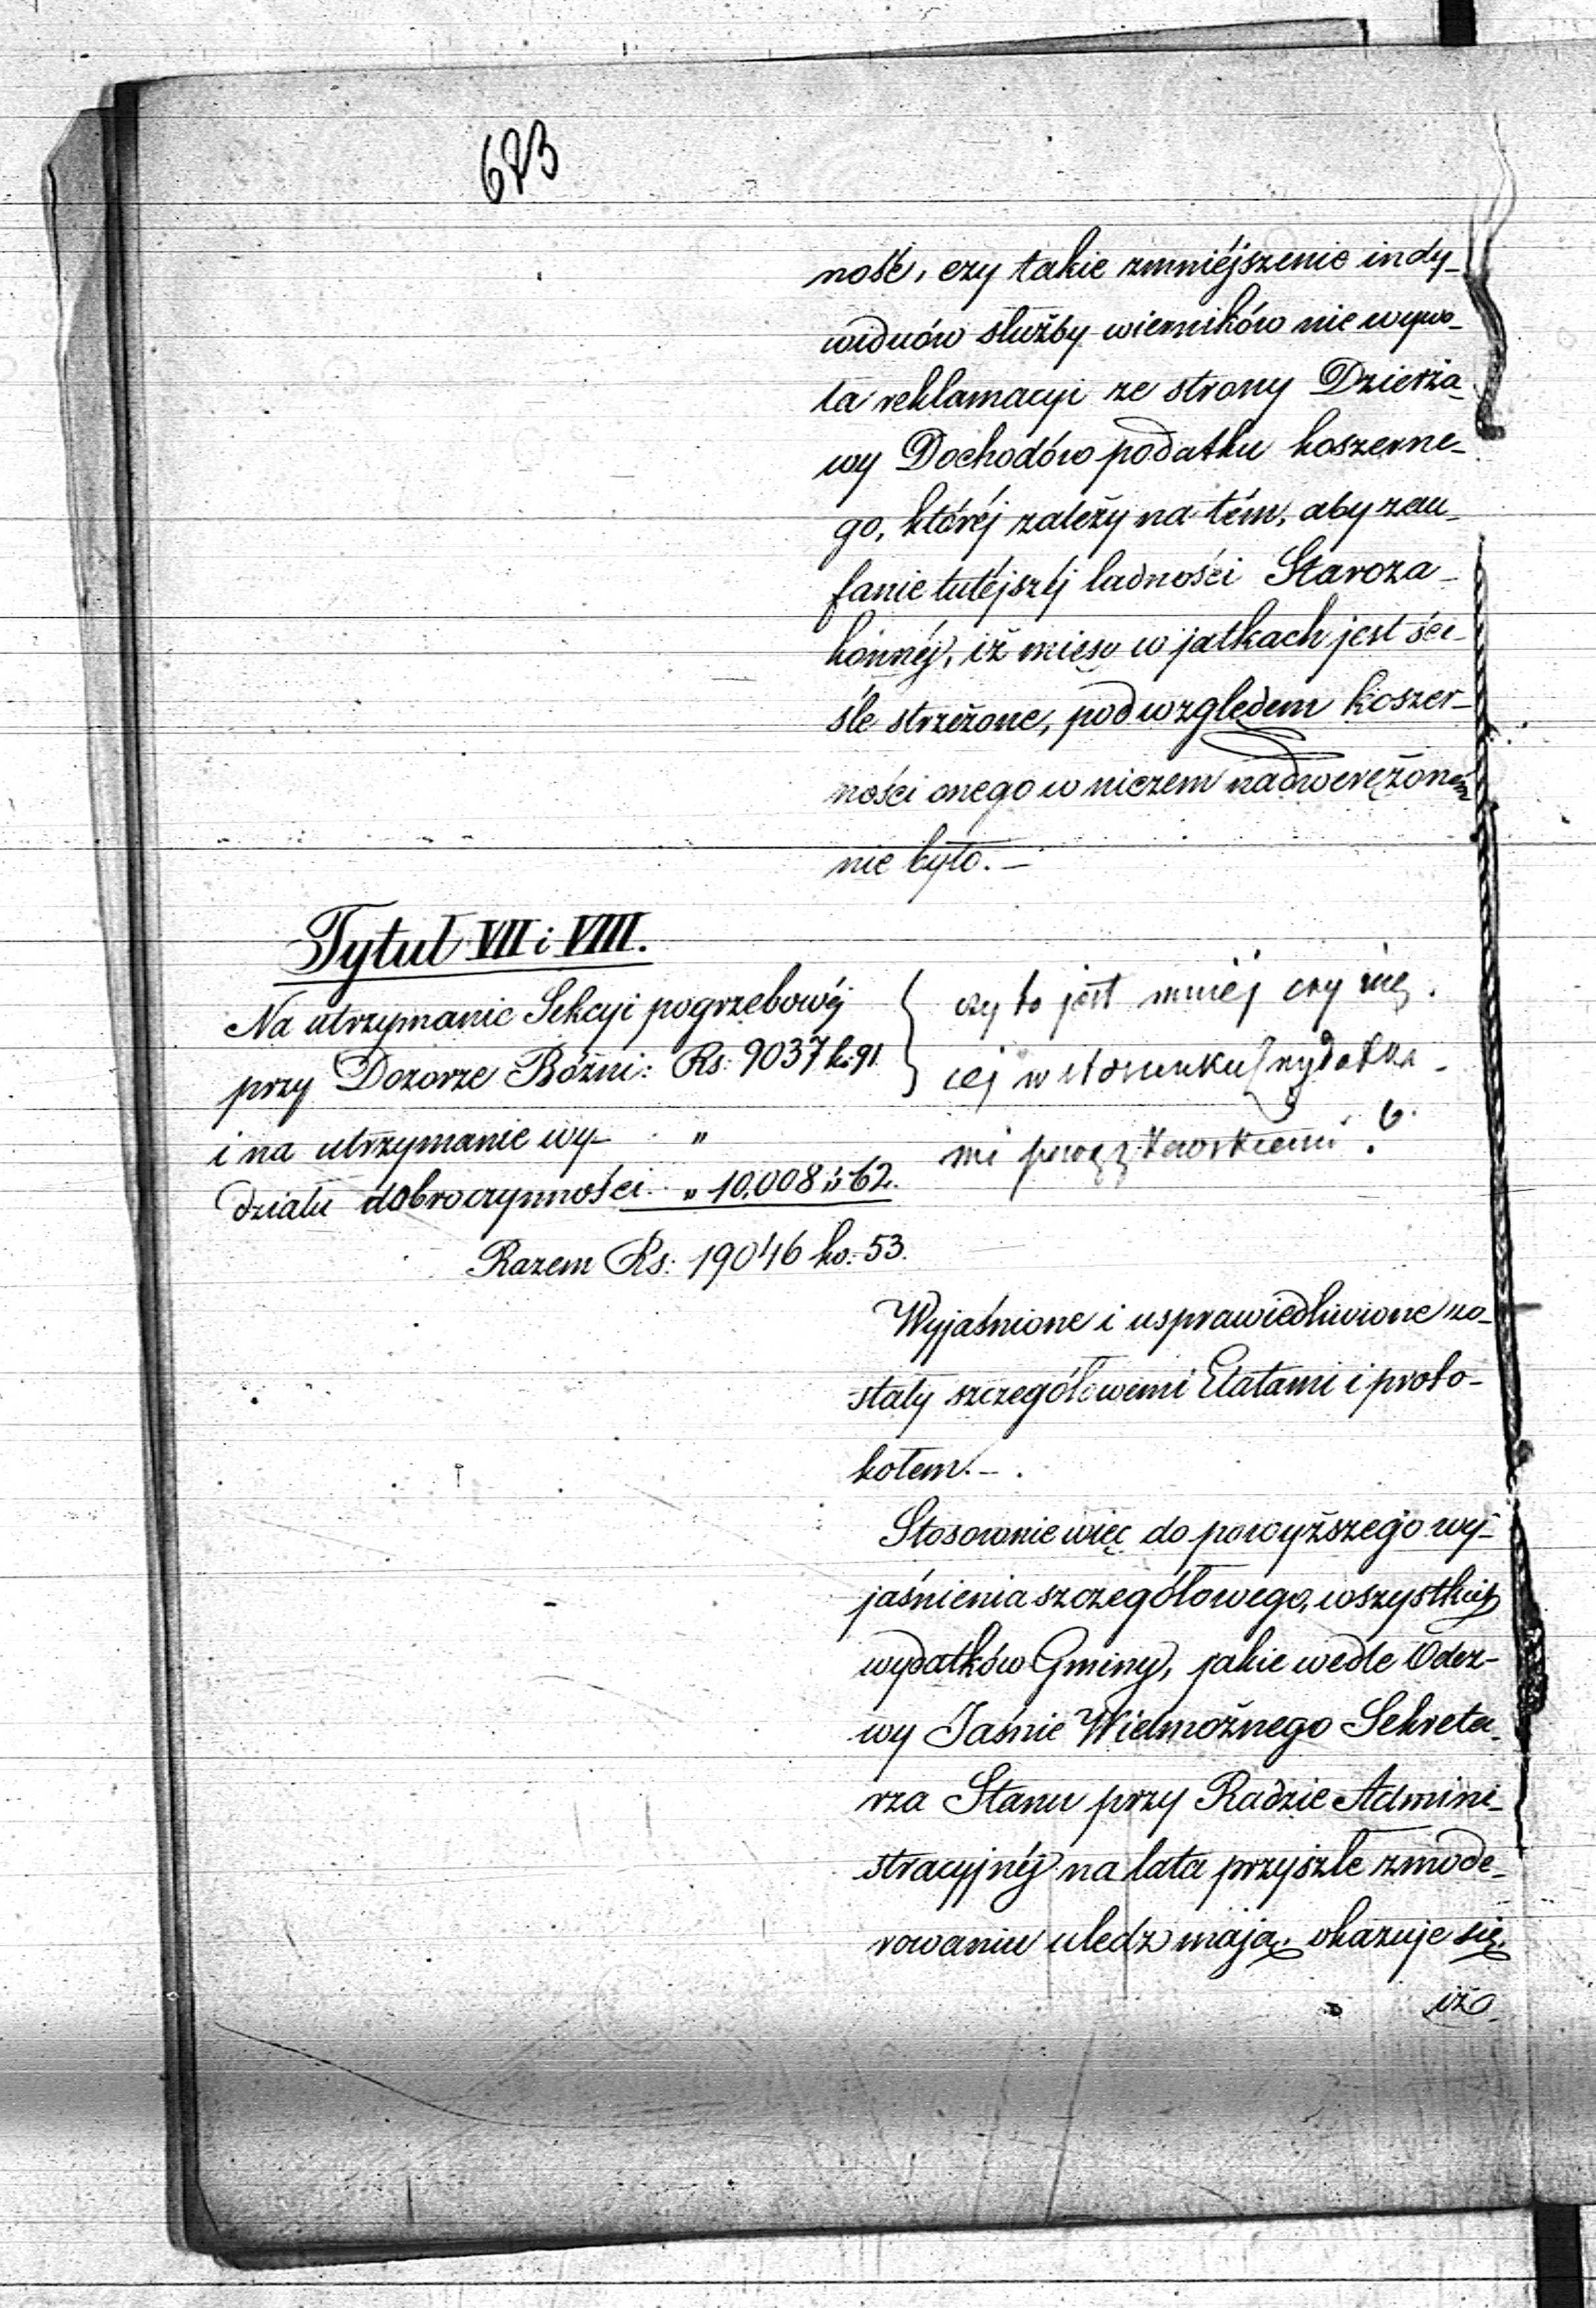 623
ność, czy takie zmniéjszenie indy-
widuów służby wierników nie wywo-
ła reklamacyi ze strony Dzierża-
wy Dochodów podatku koszerne-
go, któréj zależy na tém, aby zau-
fanie tutéjszéj ludności Staroza-
konnéj, iż mięso w jatkach jest ści-
śle strzeżone, pod względem koszer-
ności onego w niczem nadwerężoném
nie było.-
Tytuł VII i VIII.
Na utrzymanie Sekcyi pogrzebowéj
przy Dozorze Bóżni: Rs: 9037 k: 91
i na utrzymanie wy- "
działu dobroczynności " 10,008 " 62.
Razem Rs: 19046 ko: 53.
czy to jest mniéj czy wię-
cej w stosunku z wydatka-
mi ?
Wyjaśnione i usprawiedliwione zo-
stały szczegółowemi Etatami i proto-
kołem.-
Stosownie więc do powyższego wy-
jaśnienia szczegółowego, wszystkich
wydatków Gminy, jakie wedle Odez-
wy Jaśnie Wielmożnego Sekreta-
rza Stanu przy Radzie Admini-
stracyjnéj na lata przyszłe zmode-
rowaniu uledz mają, okazuje się,
iż